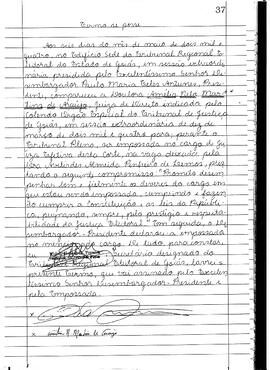 37
Termo de posse
Aos seis dias do mês de maio de dois mil e
quatro no Edifício Sede do Tribunal Regional E-
leitoral do Estado de Goiás, em sessão extraordi-
nária presidida pelo Excelentíssimo Senhor De-
sembargador Paulo Maria Teles Antunes, Presi-
dente, compareceu a Doutora Amélia Neto Mar-
tins de Araújo, Juíza de Direito indicada pelo
Colendo Órgão Especial do Tribunal de Justiça
de Goiás, em sessão extraordinária de dez de
março de dois mil e quatro para, perante o
Tribunal Pleno, ser empossada no cargo de Ju-
íza Efetiva desta Corte, na vaga deixada pelo
Almeida de Lemos, pres-
tando o seguinte compromisso: "Prometo desem-
penhar bem e fielmente os deveres do cargo em
que estou sendo empossada, cumprindo e fazen-
do cumprir a Constituição e as leis da Repúbli-
ca, pugnando, sempre, pelo prestígio e respeita-
bilidade da Justiça Eleitoral." Em seguida, o De-
sembargador-Presidente declarou a empossada
no mencionado cargo. De tudo, para constar,
eu Secretário designado do
Tribunal Regional Eleitoral de Goiás, lavrei o
presente Termo, que vai assinado pelo Excelen-
tíssimo Senhor Desembargador-Presidente e
pela Empossada.